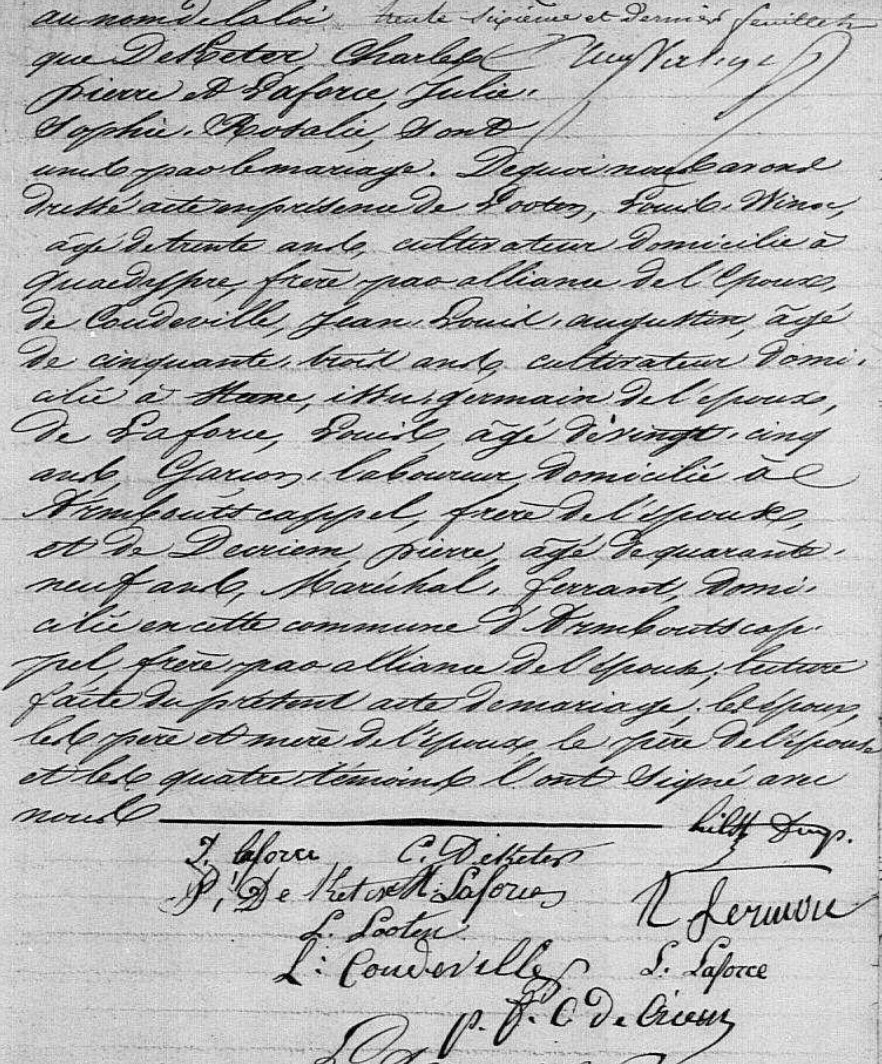 au nom de la loi trente sixième et dernier feuillet
que DeKeter, Charles
pierre et Laforce, Julie,
Sophie, Rosalie, sont
unis par le mariage. De quoi nous avons
dressé acte en présence de Looten, Louis, Winoc,
âgé de trente ans, cultivateur domicilié à
Quaedypre, frère par alliance de l'époux,
de Coudeville, Jean, Louis, augustin, âgé
de cinquante-trois ans, cultivateur domi-
cilié à , issu germain de l'époux,
de Laforce, Louis, âgé de vingt-cinq
ans, Garçon-laboureur, domicilié à
Armbouts cappel, frère de l'épouse,
et de Decriem, pierre, âgé de quarante-
neuf ans, Maréchal-ferrant, domi-
cilié en cette commune d'Armbouts cap-
pel, frère par alliance de l'épouse, lecture
faite du présent acte de mariage, les époux,
les père et mère de l'époux, le père de l'épouse
et les quatre témoins l'ont signé avec
nous
J. laforce C. DeKeter
P. De Keter Laforce
L. Looten
L. Coudeville L. Laforce